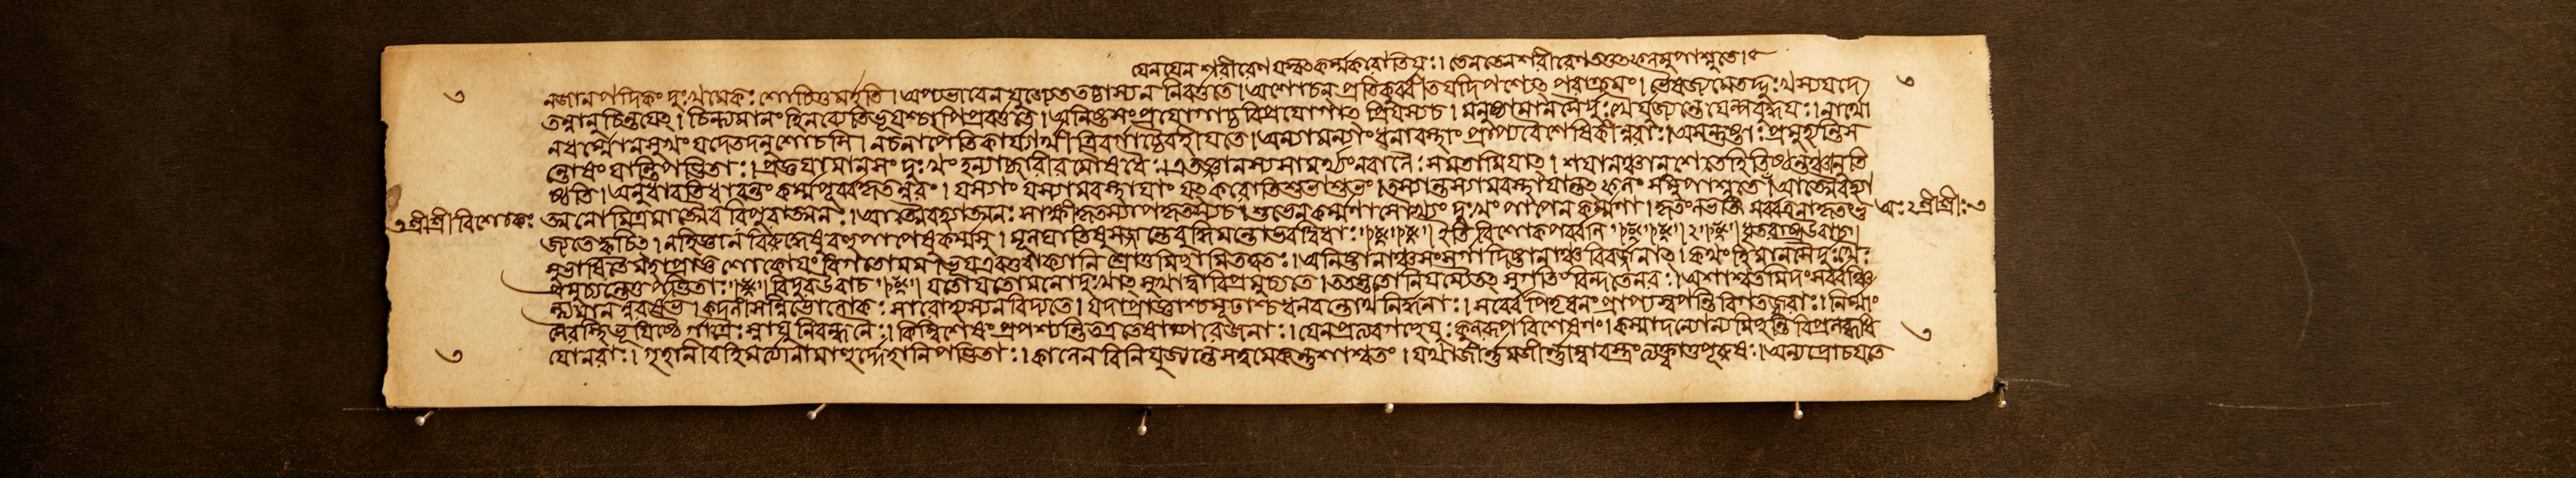 যেন যেন শরীরেণ যদ্যৎ কর্ম্ম করোতি যঃ। তেন তেন শরীরেণ তত্তৎ ফলমুপাশ্নুতে।
৩ ন জানপদিকং দুঃখমেকঃ শোচিতুমর্হতি। অপ্যভাবেন যুজ্যেত তচ্চাস্য ন নিবর্ত্ততে। অশোচন্ প্রতিকুর্ব্বীত যদি পশ্যেৎ পরাক্রমং। ভৈষজ্যমেতদ্দুঃখস্য যদে ৩
তন্নানুচিন্তয়েৎ। চিন্ত্যমানং হি ন ব্যেতি ভূয়শ্চাপি প্রবর্দ্ধতে। অনিষ্টসংপ্রযোগাচ্চ বিপ্রযোগাৎ প্রিয়স্য চ। মনুষ্যা মানসৈর্দুঃখৈ র্যুজ্যন্তে যেল্পবুদ্ধয়ঃ। নার্থো
ন ধর্ম্মো ন সুখং যদেতদনুশোচসি। ন চ নাপৈতি কার্য্যার্থী ত্রিবর্গাচ্চৈব হীয়তে। অন্যামন্যাং ধনাবস্থাং প্রাপ্য বৈশেষিকীন্নরাঃ। অসন্তুষ্টাঃ প্রমুহ্যন্তি স
ন্তোষং যান্তি পণ্ডিতাঃ। প্রজ্ঞয়া মানসং দুঃখং হন্যাচ্ছারীরমৌষধৈঃ। এতজ্জ্ঞানস্য সামর্থ্যং ন বালৈঃ সমতামিয়াৎ। শয়ানঞ্চানুশেতে হি তিষ্ঠন্তঞ্চানুতি
ষ্ঠতি। অনুধাবতি ধাবন্তং কর্ম্ম পূর্ব্বকৃতন্নরং। যস্যাং যস্যামবস্থায়াং যৎ করোতি শুভাশুভং। তস্যান্তস্যামবস্থায়ান্তৎ ফলং সমুপাশ্নুতে। আত্মৈব হ্যা
৩ শ্রী শ্রী বিশোকঃ ত্মনো মিত্রমাত্মৈব রিপুরাত্মনঃ। আত্মৈব হ্যাত্মনঃ সাক্ষী কৃতস্যাপকৃতস্য চ। শুভেন কর্ম্মণা সৌখ্যং দুঃখং পাপেন কর্ম্মণা। কৃতং ভবতি সর্ব্বত্র নাকৃতং ভু অঃ ২ শ্রী শ্রীঃ ৩
জ্যতে ক্বচিৎ। ন হি জ্ঞানবিরুদ্ধেষু বহ্বপাপেষু কর্ম্মসু। মূলঘাতিষু সজ্জন্তে বুদ্ধিমন্তো ভবদ্বিধাঃ। ইতি বিশোকপর্ব্বণি ।২। ধৃতরাষ্ট্র উবাচ।
সুভাষিতৈর্মহাপ্রাজ্ঞ শোকোয়ং বিগতো মম। ভূয় এব তু বাক্যানি শ্রোতুমিচ্ছামি তত্ত্বতঃ। অনিষ্টানাঞ্চ সংসর্গাদিষ্টানাঞ্চ বিবর্জ্জনাৎ। কথং হি মানসৈর্দুঃখৈঃ
প্রমুচ্যন্তেত্র পণ্ডিতাঃ। বিদুর উবাচ। যতো যতো মনো দুঃখাৎ সুখাদ্বা বিপ্রমুচ্যতে। ততস্ততো নিয়ম্যৈতৎ সুগতিং বিন্দতে নরঃ। অশাশ্বতমিদং সর্ব্বঞ্চি
ন্ত্যমানন্নরর্ষভ। কদলীসন্নিভো লোকঃ সারো হ্যস্য ন বিদ্যতে। যদা প্রাজ্ঞাশ্চ মূঢাশ্চ ধনবন্তোথ নির্দ্ধনাঃ। সর্ব্বে পিতৃবনং প্রাপ্য স্বপন্তি বিগতজ্বরাঃ। নির্ম্মাং
সৈরস্থিভূয়িষ্ঠৈ র্গাত্রৈঃ স্নায়ুনিবন্ধনৈঃ। কিম্বিশেষং প্রপশ্যন্তি তত্র তেষাম্পরে জনাঃ। যেন প্রত্যবগচ্ছেয়ুঃ কুলরূপবিশেষণং। কস্মাদন্যোন্যমিচ্ছন্তি বিপ্রলব্ধধি ৩
৩ য়ো নরাঃ। গৃহানীব হি মর্ত্যানামাহুর্দ্দেহানি পণ্ডিতাঃ। কালেন বিনিযুজ্যন্তে সত্ত্বমেকন্তু শাশ্বতং। যথা জীর্ণমজীর্ণম্বা বস্ত্রং ত্যক্ত্বা তু পূরুষঃ। অন্যপ্রোচয়তে